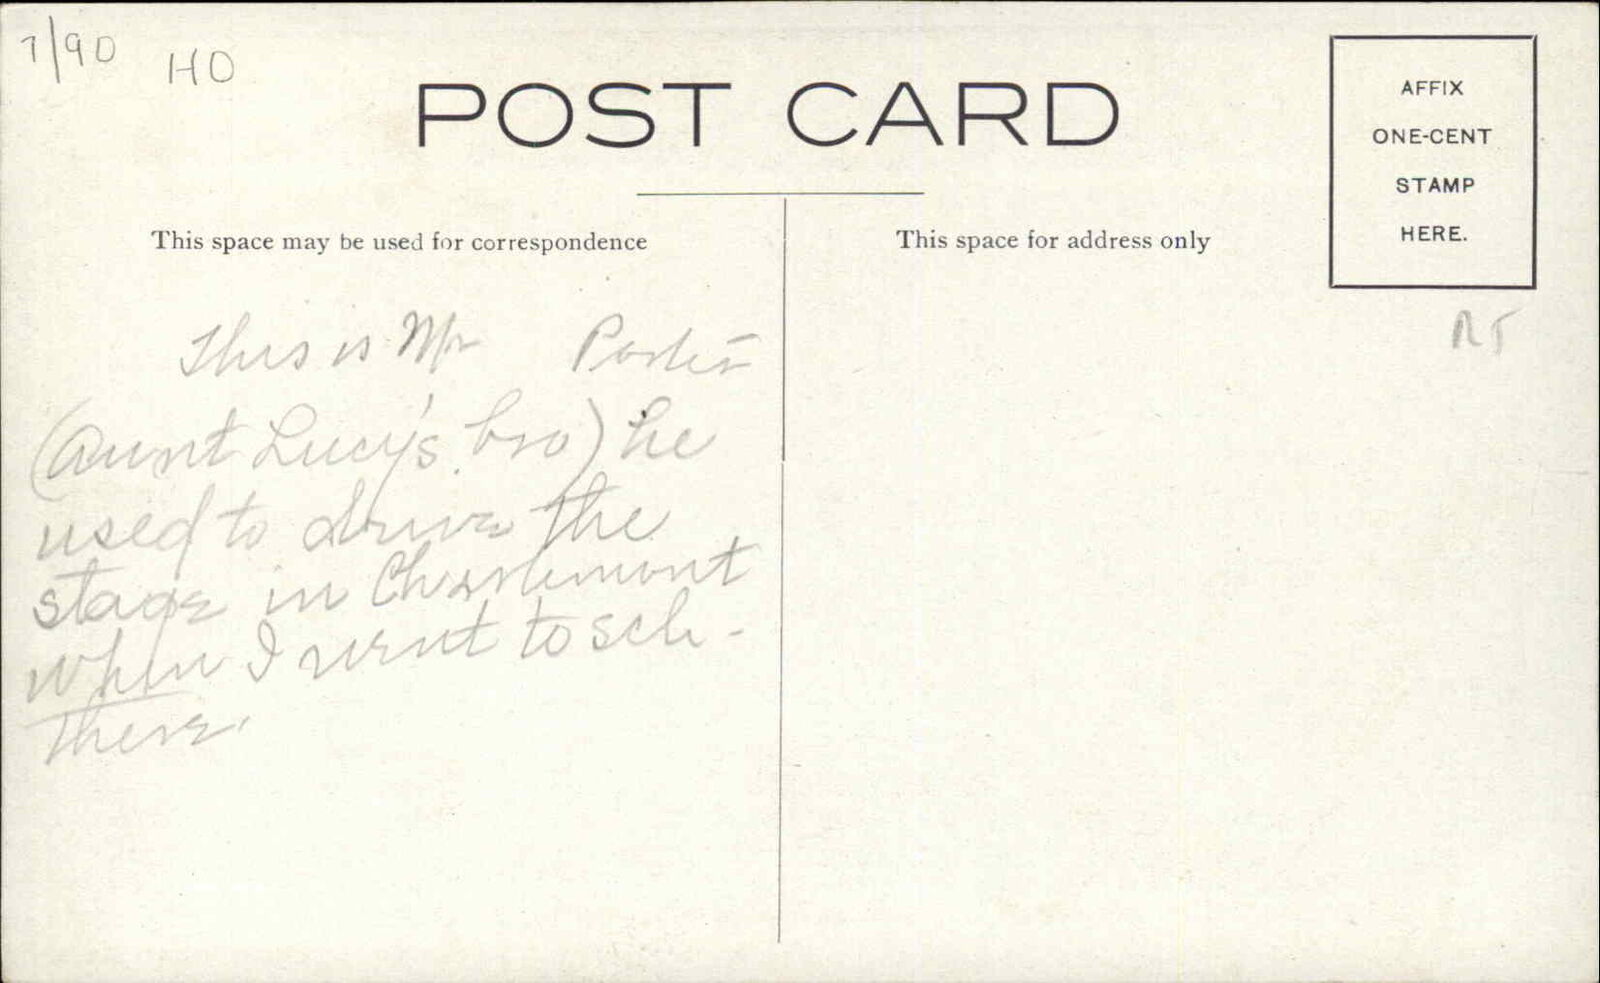 7/90 HO
POST CARD
AFFIX
ONE-CENT
STAMP
HERE.
This space may be used for correspondence
This space for address only
RT
This is Mr Porter
(Aunt Lucy's bro) he
used to drive the
stage in Charlemont
when I went to sch-
there.